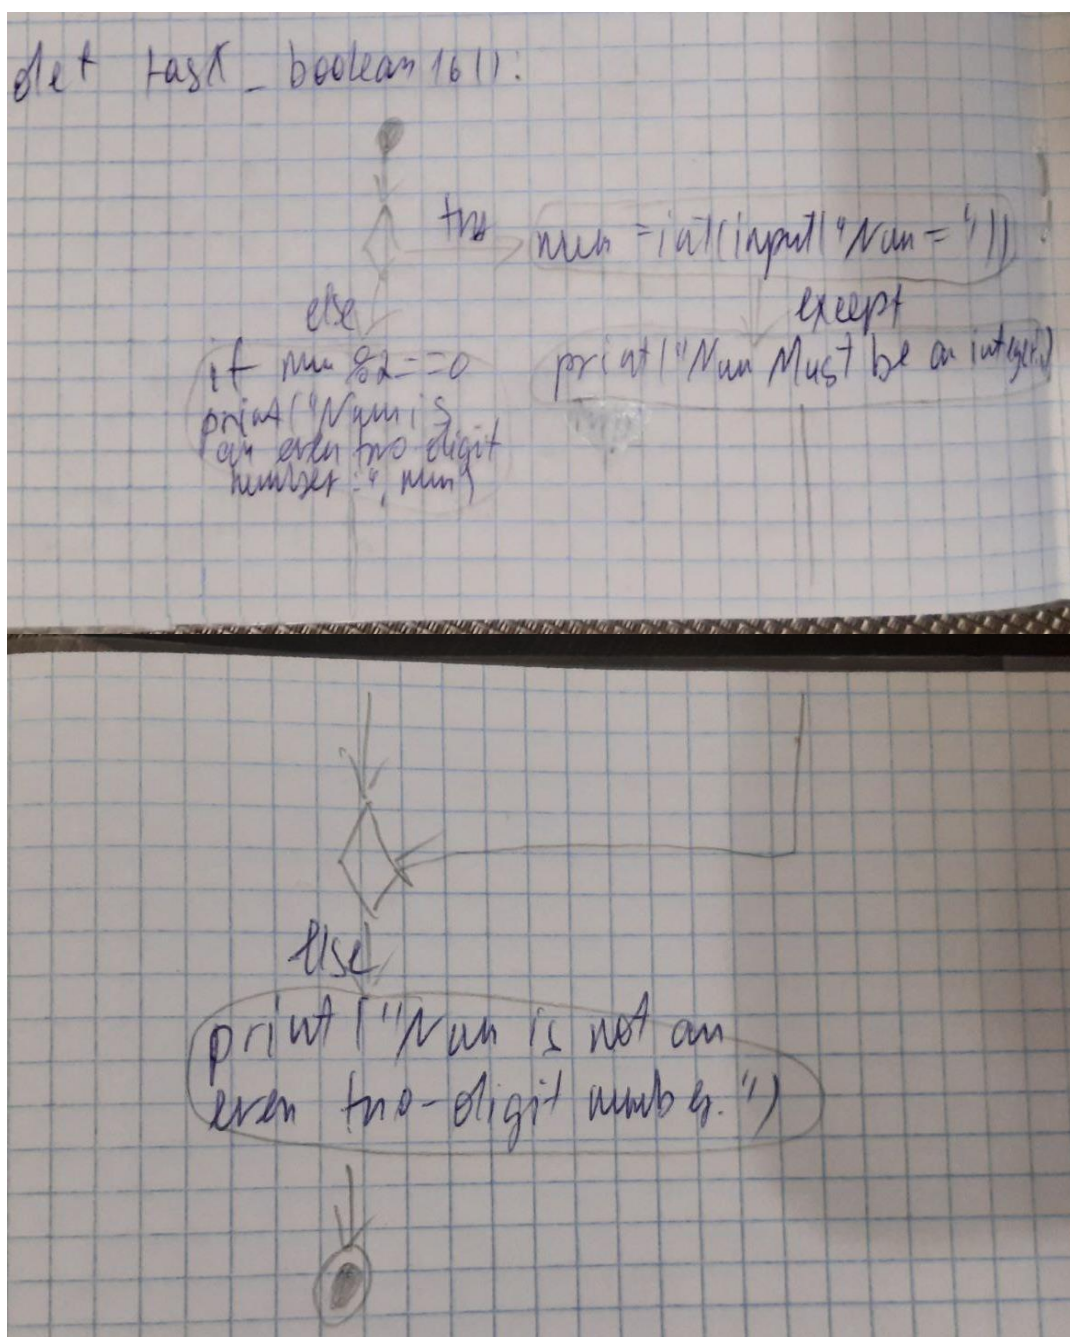 def task_boolean16():
try
num =int(input("Num = "))
else
except
if num %2==0
print("Num Must be an integer.")
print("Num is
an even two digit
number :", num)
else
print ("Num is not an
even two-digit number.")